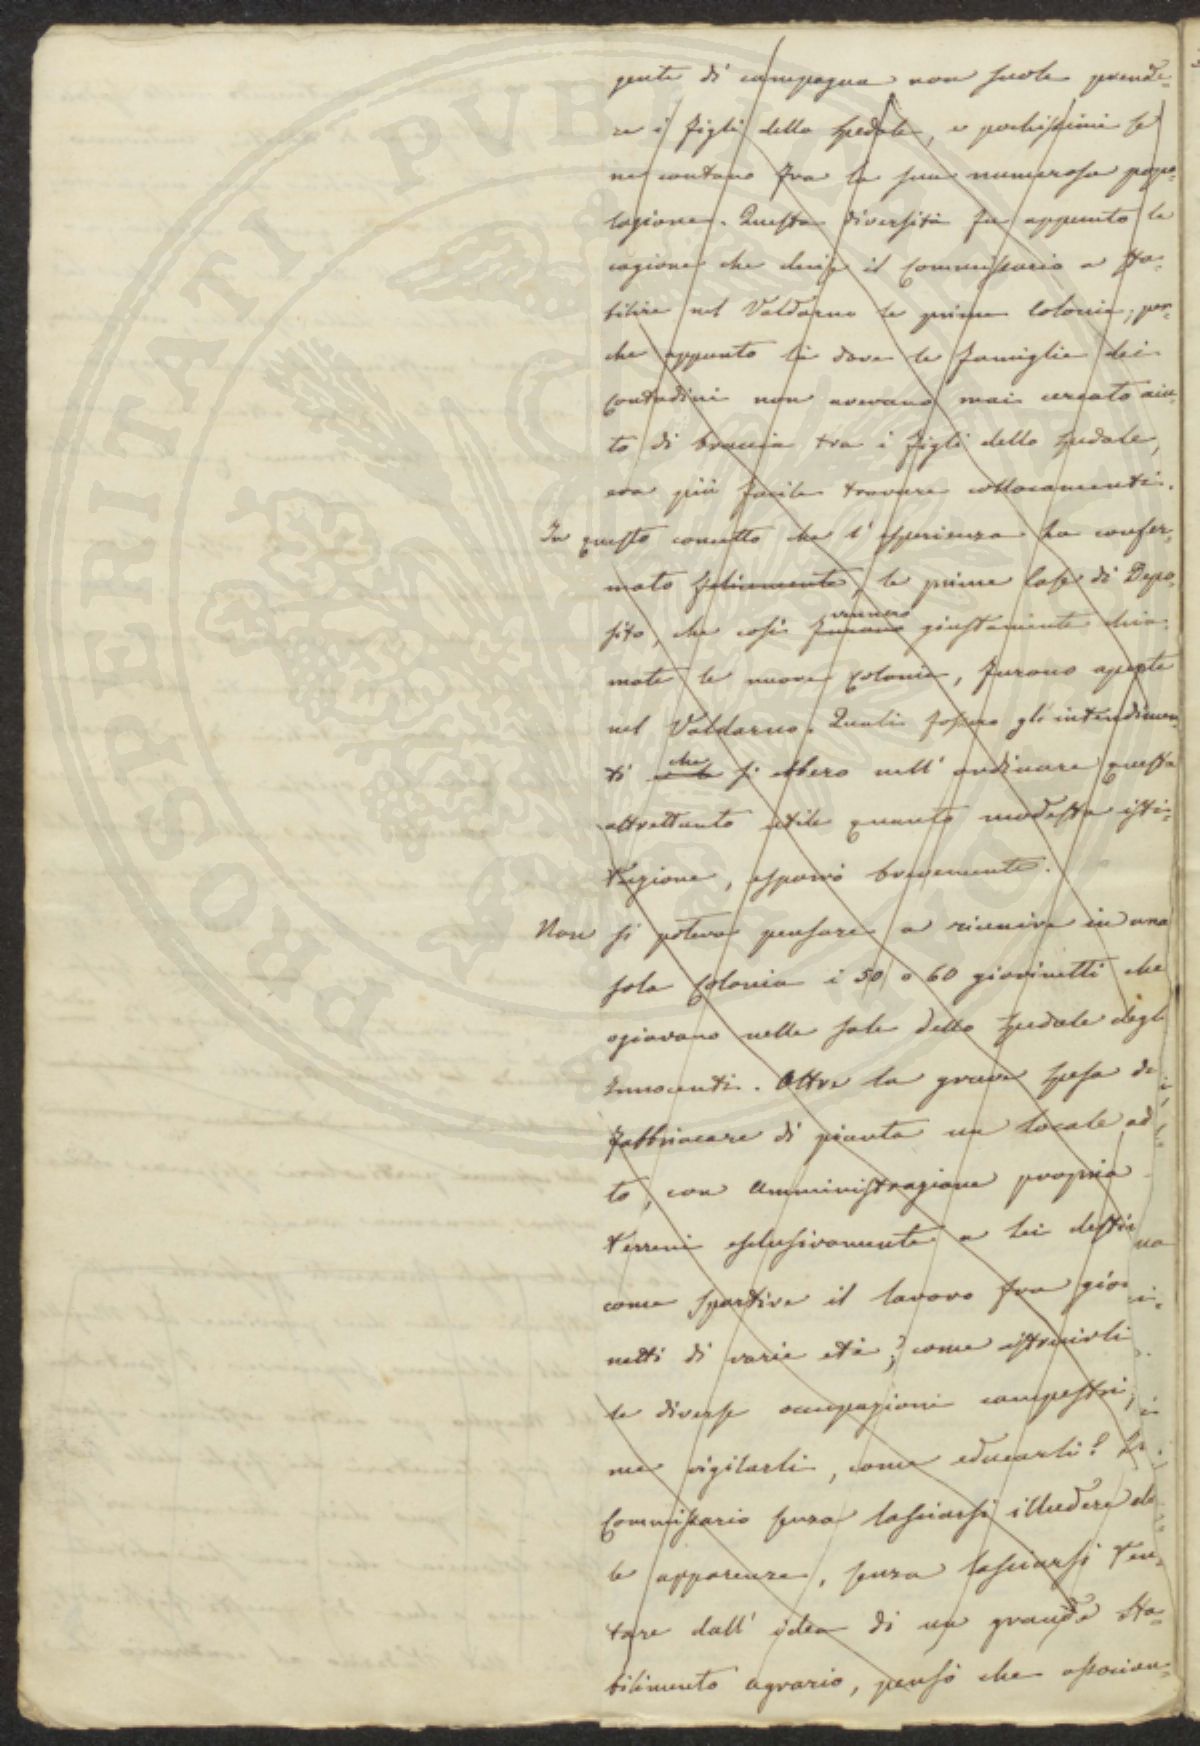 gente di campagna non suole prende-
re i figli dello Spedale, e pochissimi se
ne contano fra la sua numerosa popo-
lazione. Questa diversità fu appunto la
cagione che decise il Commissario a sta-
bilire nel Valdarno le prime Colonie; per-
che appunto là dove le famiglie dei
Contadini non avevano mai cercato aiu-
to di braccia tra i figli dello Spedale,
era più facile trovare collocamenti.
In questo concetto che l'esperienza ha confer-
mato felicemente, le prime Case di Depo-
sito, che così furono vennero giustamente chia-
mate le nuove Colonie, furono aperte
nel Valdarno. Quali fossero gli intendimen-
ti che si ebbero nell'ordinare questa
altrettanto utile quanto modesta isti-
tuzione, esporrò brevemente.
Non si poteva pensare a riunire in una
sola Colonia i 50 o 60 giovinetti che
oziavano nelle sale dello Spedale degli
Innocenti. Oltre la grave spesa di
fabbricare di pianta un locale ad
to, con Amministrazione propria
terreni esclusivamente a lei desti
come spartire il lavoro fra giov
netti di varie età?, come istruirli
le diverse occupazioni campestri,
me vigilarli, come educarli? Il
Commissario senza lasciarsi illudere da
le apparenze, senza lasciarsi ten-
tare dall'idea di un grande Sta-
bilimento agrario, pensò che associan-
PROSPERITATI PVBLICAE